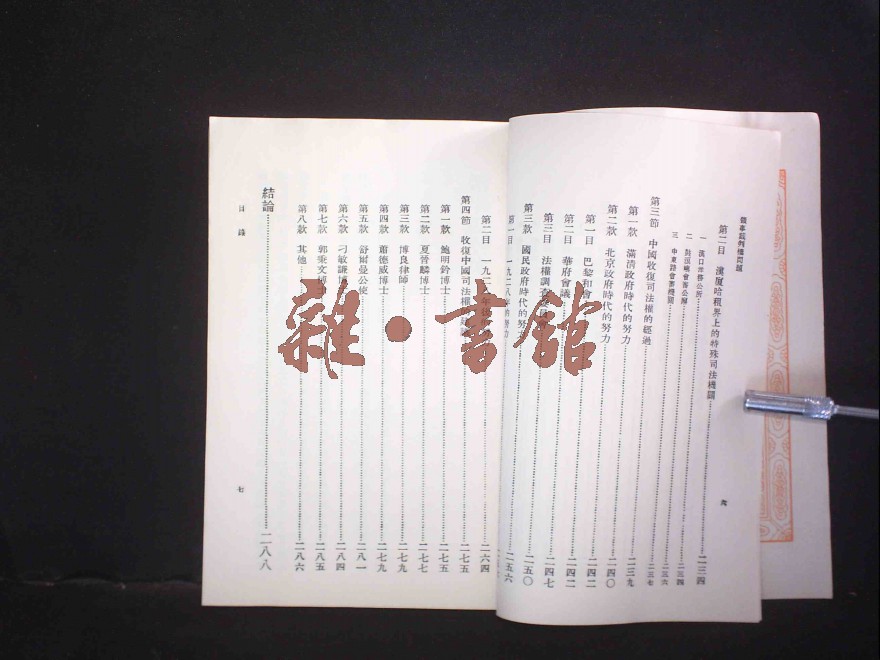 領事裁判權問題
第二目 漢廈哈租界上的特殊司法機關……二三四
一 漢口洋務公所……二三四
二 鼓浪嶼會審公廨……二三六
三 中東路會審機關……二三七
第三節 中國收復司法權的經過……二三九
第一款 滿清政府時代的努力……二三九
第二款 北京政府時代的努力……二四〇
第一目 巴黎和會……二四二
第二目 華府會議……二四二
第三目 法權調查……二四七
第三款 國民政府時代的努力……二五〇
第一目 一九二八年的努力
第二目 一九二……二五六
第四節 收復中國司法權……二六四
第一款 鮑明鈐博士……二七五
第二款 夏晉麟博士……二七七
第三款 博良律師……二七九
第四款 蕭德威博士……二七九
第五款 舒爾曼公使……二八一
第六款 刁敏謙博士……二八四
第七款 郭秉文博士……二八五
第八款 其他……二八六
結論……二八八
目錄
七
雜·書館